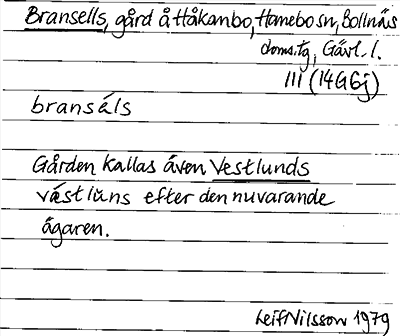 Bransells, gård å Håkanbo, Hanebo sn, Bollnäs
doms.tg, Gävl. l.
III (14G6j)
bransáls
Gården kallas även Vestlunds
västlŭns efter den nuvarande
ägaren.
Leif Nilsson 1979